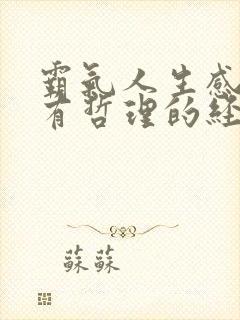 霸氣人生感
有哲理的經
蘇蘇